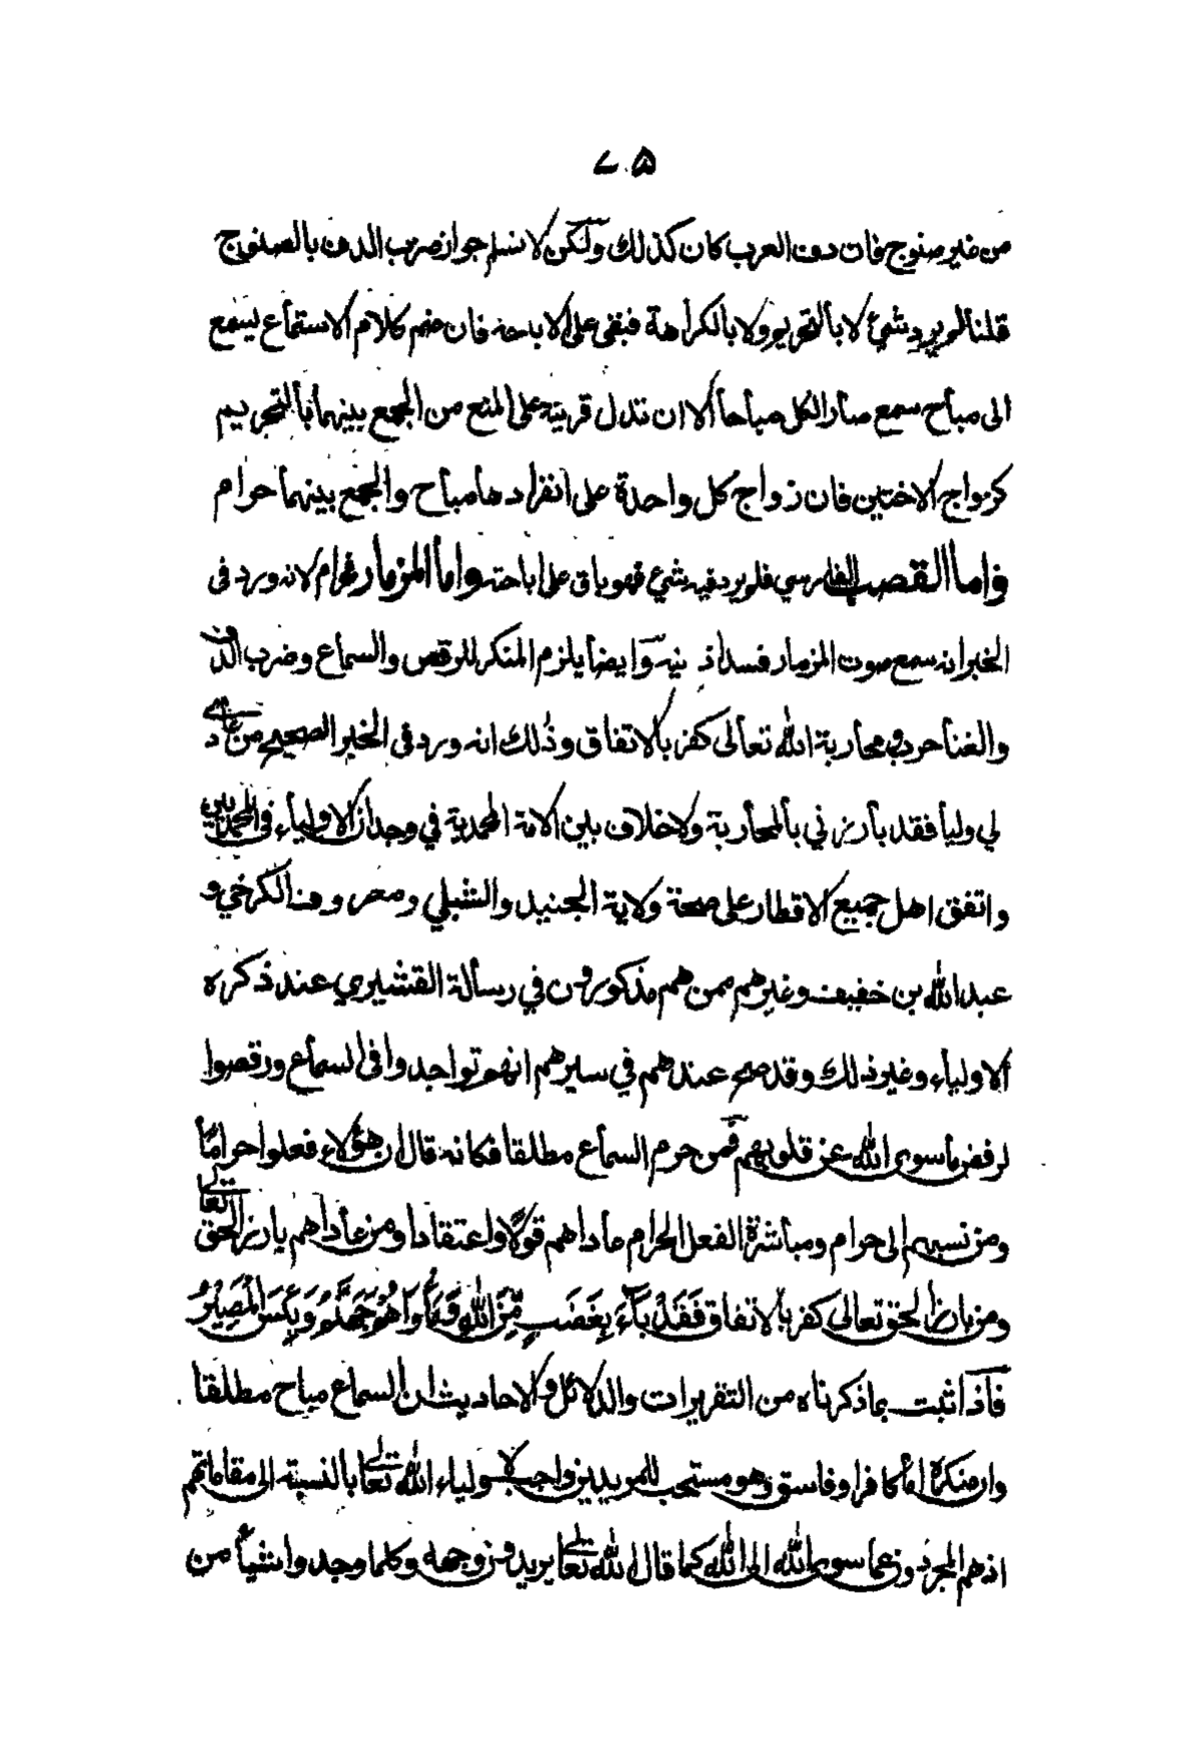 ٧٠٥
من غير صنوج فان دف العرب كان كذلك ولكن لا نسلم جواز ضرب الدف بالصنوج
قلنا لم يرد شئ لا بالتحريم ولا بالكراهة فبقى على الاباحة فان ضم كلام الاستماع يسمع
الى مباح سمع صار الكل مباحا الا ان تدل قرينة على المنع من الجمع بينهما بالتحريم
كزواج الاختين فان زواج كل واحدة على انفرادها مباح والجمع بينهما حرام
واما القصب الفارسي فلم يرد فيه شئ فهو باق على اباحته واما المزمار فحرام لانه ورد فى
الخبر انه سمع صوت المزمار فسد اذنيه وايضا يلزم المنكر للرقص والسماع وضرب الدف
والغنا حرب ومحاربة الله تعالى كفر بالاتفاق وذلك انه ورد فى الخبر الصحيح من عادى
لي وليا فقد بارزني بالمحاربة ولا خلاف بين الامة المحمدية في وجدان الاولياء فى المحمديين
واتفق اهل جميع الاقطار على صحة ولاية الجنيد والشبلي ومعروف الكرخي و
عبد الله بن خفيف وغيرهم ممن هم مذكورون في رسالة القشيري عند ذكره
الاولياء وغير ذلك وقد صح عندهم في سيرهم انهم تواجدوا فى السماع ورقصوا
لرفض ما سوى الله عن قلوبهم فمن حرم السماع مطلقا فكانه قال ان هؤلاء فعلوا حراما
ومن نسبهم الى حرام ومباشرة الفعل الحرام عاداهم قولا واعتقادا ومن عاداهم بارز الحق تعالى
ومن بارز الحق تعالى كفر بالاتفاق فَقَدْ بَآءَ بِغَضَبٍ مِّنَ اللهِ وَمَأْوَاهُ جَهَنَّمُ وَبِئْسَ الْمَصِيْرُ
فاذا ثبت بما ذكرناه من التقريرات والدلائل والاحاديث ان السماع مباح مطلقا
وان منكره اما كافر او فاسق وهو مستحب للمريدين واجب لاولياء الله تعالى بالنسبة الى مقاماتهم
اذ هم المجردون عما سوى الله الى الله كما قال الله تعالى يريدون وجهه وكلما وجدوا شيأ من